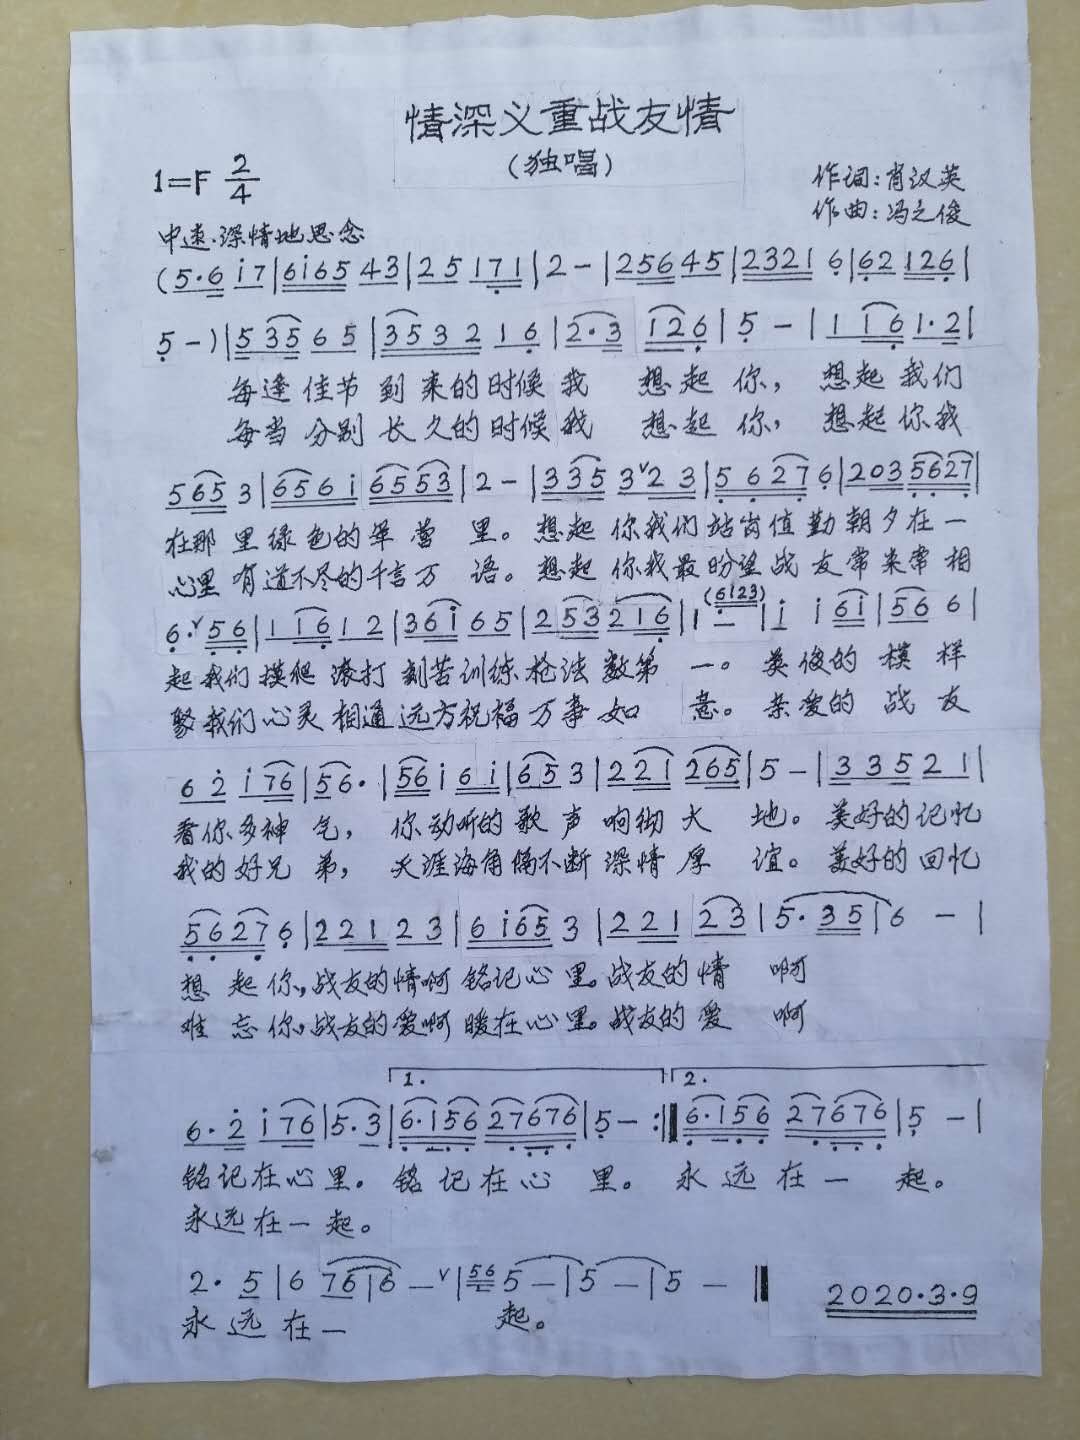 情深义重战友情
(独唱)
1=F 2/4
作词:肖汉英
作曲:冯之俊
中速.深情地思念
(5·6 i7|6i65 43|25 171|2-|256 45|2321 6|62 126|
5-)|5 35 65|3532 16|2·3 126|5-|1 16 1·2|
每逢佳节到来的时候我 想起你, 想起我们
每当分别长久的时候我 想起你, 想起你我
565 3|656i 6553|2-|335 3˅23|5627 6|203 5627|
在那里绿色的军营里。想起你我们站岗值勤朝夕在一
心里有道不尽的千言万语。想起你我最盼望战友常来常相
6·˅56|1 16 12|36i 65|253 216|1 (6123) -|i i6i|56 6|
起我们摸爬滚打刻苦训练枪法数第一。英俊的模样
聚我们心灵相通远方祝福万事如意。亲爱的战友
62 i76|56·|56i 6i|65 3|221 265|5-|335 21|
看你多神气, 你动听的歌声响彻大地。美好的记忆
我的好兄弟, 天涯海角隔不断深情厚谊。美好的回忆
5627 6|221 23|6i65 3|221 23|5·35|6-|
想起你,战友的情啊铭记心里。战友的情 啊
难忘你,战友的爱啊暖在心里。战友的爱 啊
1. 2.
6·2 i76|5·3|6·156 27676|5-:‖6·156 27676|5-|
铭记在心里。铭记在心里。永远在一起。
永远在一起。
2·5|6 76|6-˅|56 5-|5-|5-‖
永远在一 起。
2020·3·9